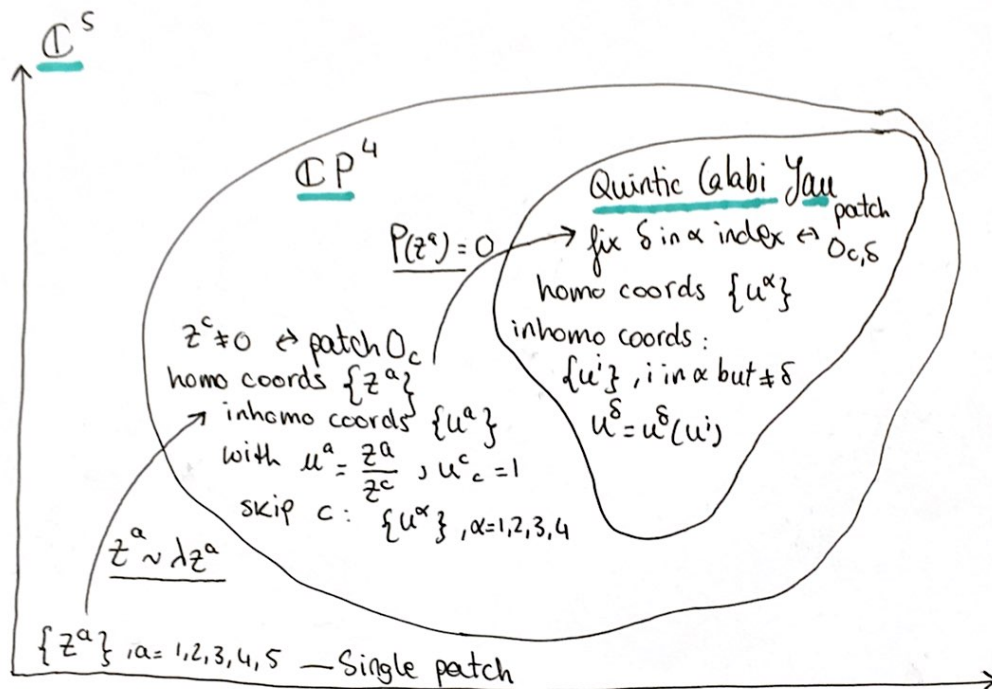 ℂ⁵
ℂP⁴
Quintic Calabi Yau
P(zᵃ) = 0
fix δ in α index ↔ patch O_{c,δ}
homo coords {u^α}
inhomo coords :
{uⁱ} , i in α but ≠ δ
u^δ = u^δ(uⁱ)
zᶜ ≠ 0 ↔ patch O_c
homo coords {zᵃ}
inhomo coords {uᵃ}
with uᵃ = zᵃ/zᶜ , uᶜ_c = 1
skip c : {u^α} , α=1,2,3,4
zᵃ ~ λzᵃ
{zᵃ} , a= 1,2,3,4,5 — Single patch